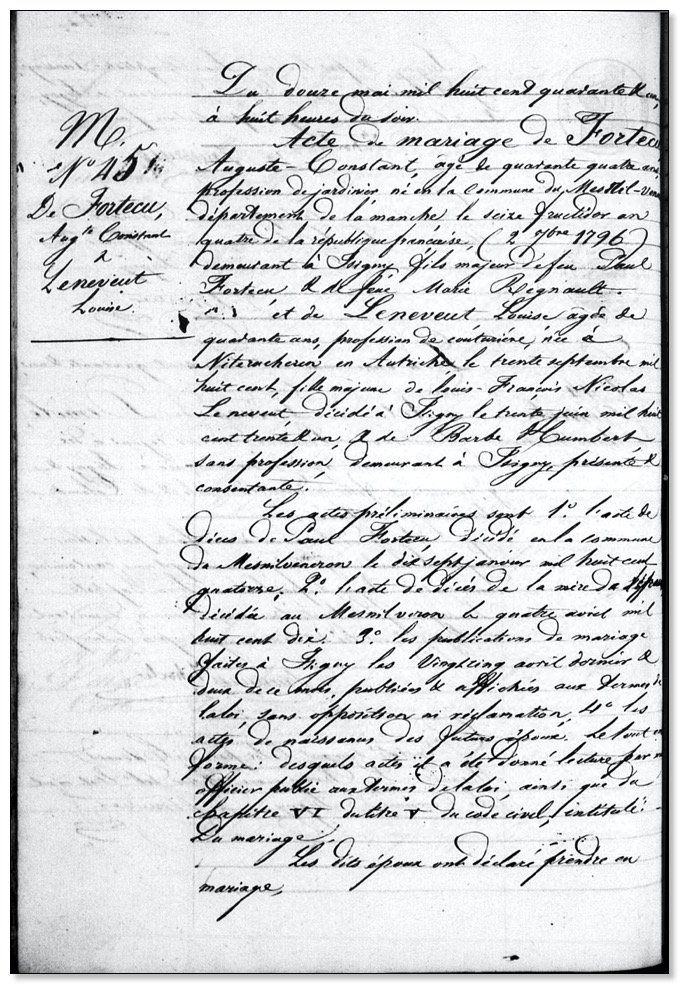 Du douze mai mil huit cent quarante & un,
à huit heures du soir.
M.
N° 45
De Fortecu,
Aug.te Constant
à
Leneveut
Louise.
Acte de mariage de Fortecu
Auguste-Constant, agé de quarante quatre ans
profession de jardinier né en la commune du Mesnil-Vene
département de la manche le seize fructidor an
quatre de la république française, (2 7bre 1796)
demeurant à Isigny, fils majeur de feu Paul
Fortecu & de feue Marie Regnault.
et de Leneveut Louise agée de
quarante ans, profession de couturière, née à
en Autriche le trente septembre mil
huit cent, fille majeure de Louis-François Nicolas
Leneveut décédé à Isigny le trente juin mil huit
cent trente & un, & de Barbe Humbert
sans profession, demeurant à Isigny, présente &
consentante.
Les actes préliminaires sont 1° l'acte de
décès de Paul Fortecu, décédé en la commune
de Mesnilveneron le dix sept janvier mil huit cent
quatorze. 2° l'acte de décès de la mère de l'époux
décédée au Mesnilveron le quatre avril mil
huit cent dix. 3° les publications de mariage
faites à Isigny les vingt cinq avril dernier &
deux de ce mois, publiées & affichées aux termes de
la loi, sans opposition ni réclamation, 4° les
actes de naissances des futurs époux. Le tout en
forme: desquels actes il a été donné lecture par
officier public aux termes de la loi, ainsi que du
chapitre VI du titre V du code civil, intitulé:
Du mariage.
Les dits époux ont déclaré prendre en
mariage,